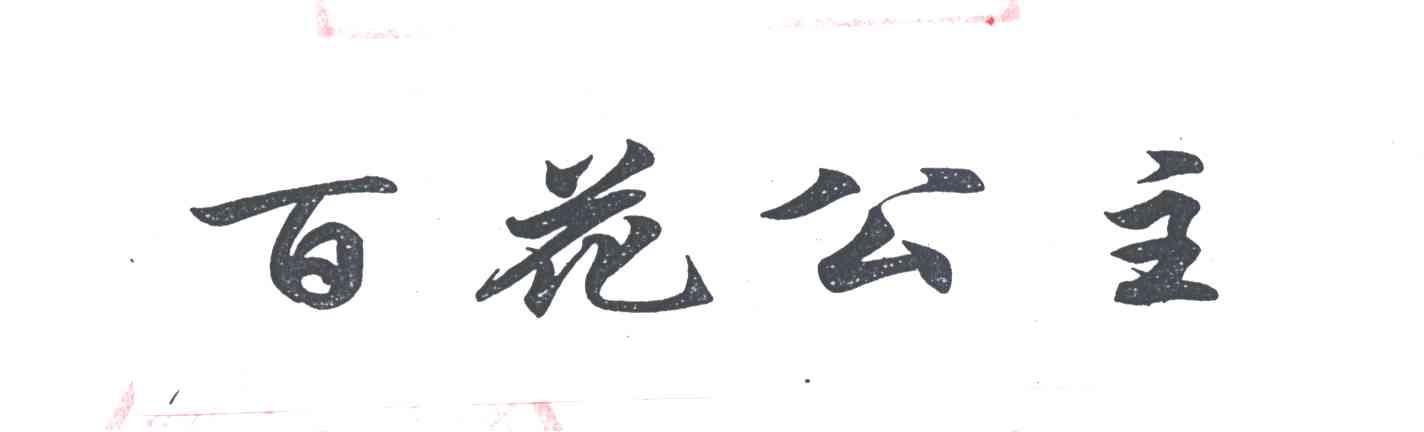 百花公主